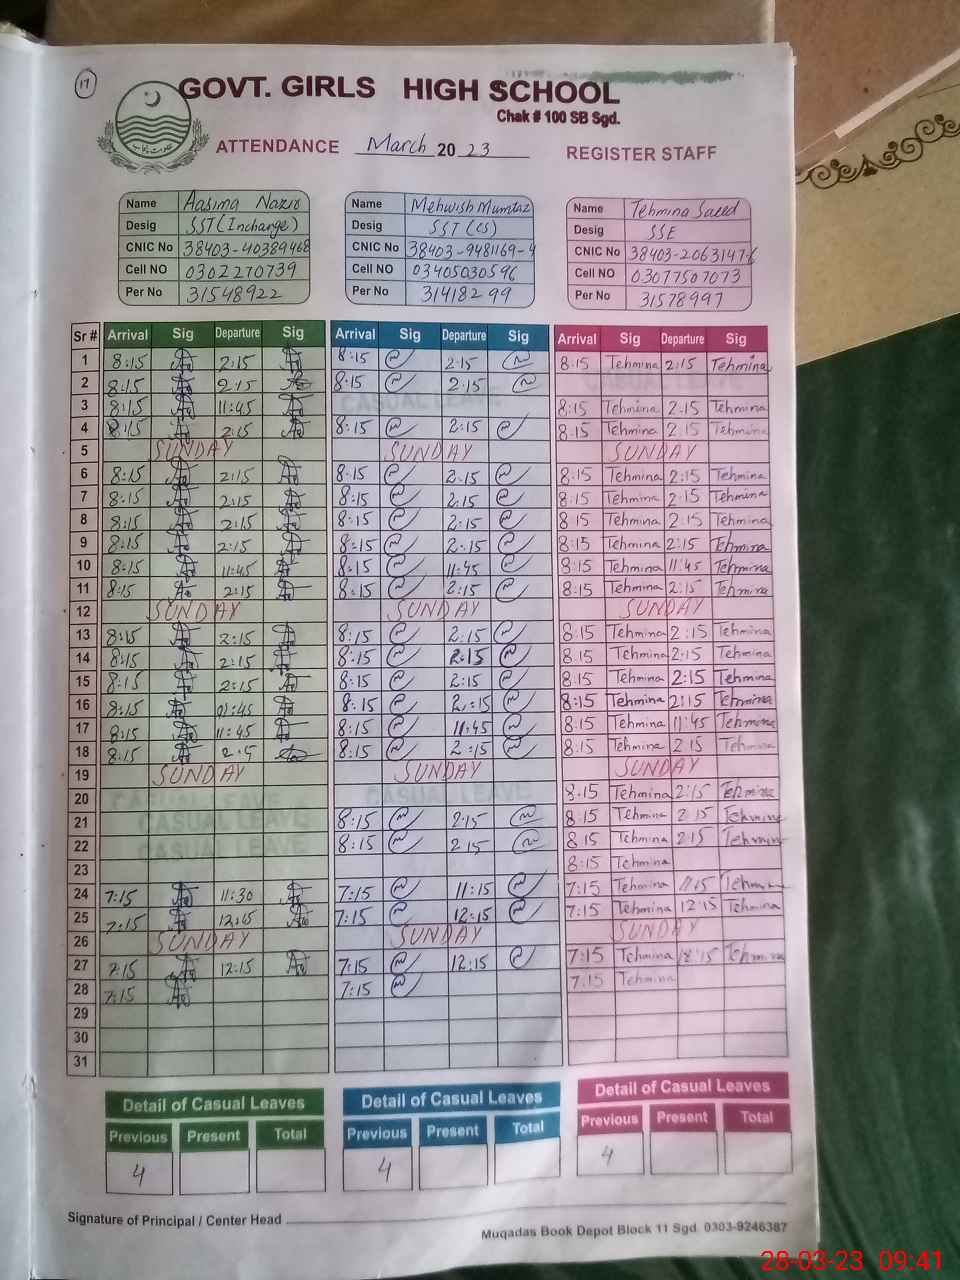 17
GOVT. GIRLS HIGH SCHOOL
Chak # 100 SB Sgd.
ATTENDANCE March 2023 REGISTER STAFF
Name Aasima Nazir Name Mehwish Mumtaz Name Tehmina Saeed
Desig SST (Incharge) Desig SST (CS) Desig SSE
CNIC No 38403-40389468 CNIC No 38403-9481169-4 CNIC No 38403-2063147-6
Cell NO 0302270739 Cell NO 03405030596 Cell NO 03077507073
Per No 31548922 Per No 31418299 Per No 31578997
Sr # Arrival Sig Departure Sig Arrival Sig Departure Sig Arrival Sig Departure Sig
1 8:15 2:15 8:15 2:15 8:15 Tehmina 2:15 Tehmina
2 8:15 2:15 8:15 2:15 CASUAL LEAVE
3 8:15 11:45 CASUAL LEAVE 8:15 Tehmina 2:15 Tehmina
4 8:15 2:15 8:15 2:15 8:15 Tehmina 2:15 Tehmina
5 SUNDAY SUNDAY SUNDAY
6 8:15 2:15 8:15 2:15 8:15 Tehmina 2:15 Tehmina
7 8:15 2:15 8:15 2:15 8:15 Tehmina 2:15 Tehmina
8 8:15 2:15 8:15 2:15 8:15 Tehmina 2:15 Tehmina
9 8:15 2:15 8:15 2:15 8:15 Tehmina 2:15 Tehmina
10 8:15 11:45 8:15 11:45 8:15 Tehmina 11:45 Tehmina
11 8:15 2:15 8:15 2:15 8:15 Tehmina 2:15 Tehmina
12 SUNDAY SUNDAY SUNDAY
13 8:15 2:15 8:15 2:15 8:15 Tehmina 2:15 Tehmina
14 8:15 2:15 8:15 2:15 8:15 Tehmina 2:15 Tehmina
15 8:15 2:15 8:15 2:15 8:15 Tehmina 2:15 Tehmina
16 8:15 8:15 2:15 8:15 Tehmina 2:15 Tehmina
17 8:15 11:45 8:15 11:45 8:15 Tehmina 11:45 Tehmina
18 8:15 8:15 2:15 8:15 Tehmina 2:15 Tehmina
19 SUNDAY SUNDAY SUNDAY
20 CASUAL LEAVE CASUAL LEAVE 8:15 Tehmina 2:15 Tehmina
21 CASUAL LEAVE 8:15 2:15 8:15 Tehmina 2:15 Tehmina
22 CASUAL LEAVE 8:15 2:15 8:15 Tehmina 2:15 Tehmina
23 8:15 Tehmina
24 7:15 11:30 7:15 11:15 7:15 Tehmina 11:15 Tehmina
25 7:15 12:15 7:15 12:15 7:15 Tehmina 12:15 Tehmina
26 SUNDAY SUNDAY SUNDAY
27 7:15 12:15 7:15 12:15 7:15 Tehmina Tehmina
28 7:15 7:15 7:15 Tehmina
29
30
31
Detail of Casual Leaves Detail of Casual Leaves Detail of Casual Leaves
Previous Present Total Previous Present Total Previous Present Total
4 4 4
Signature of Principal / Center Head
Muqadas Book Depot Block 11 Sgd. 0303-9246387
28-03-23 09:41